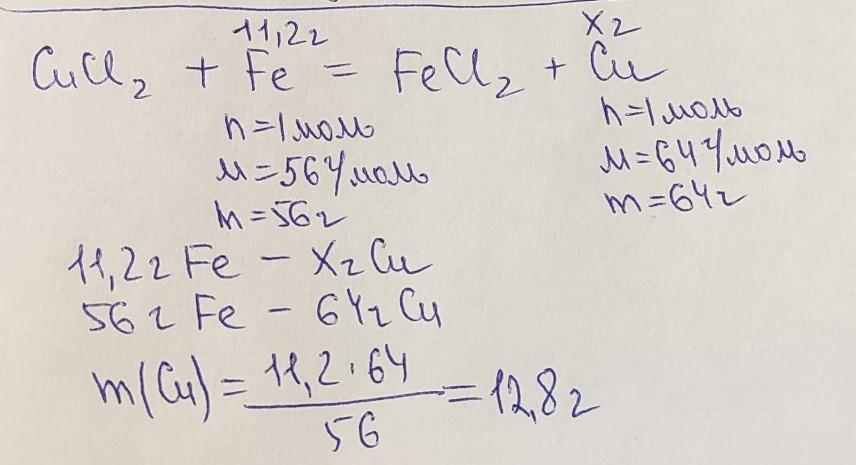 11,2г х г
CuCl₂ + Fe = FeCl₂ + Cu
n=1моль n=1моль
M=56г/моль M=64г/моль
m=56г m=64г
11,2г Fe - хг Cu
56г Fe - 64г Cu
m(Cu) = 11,2·64 / 56 = 12,8г